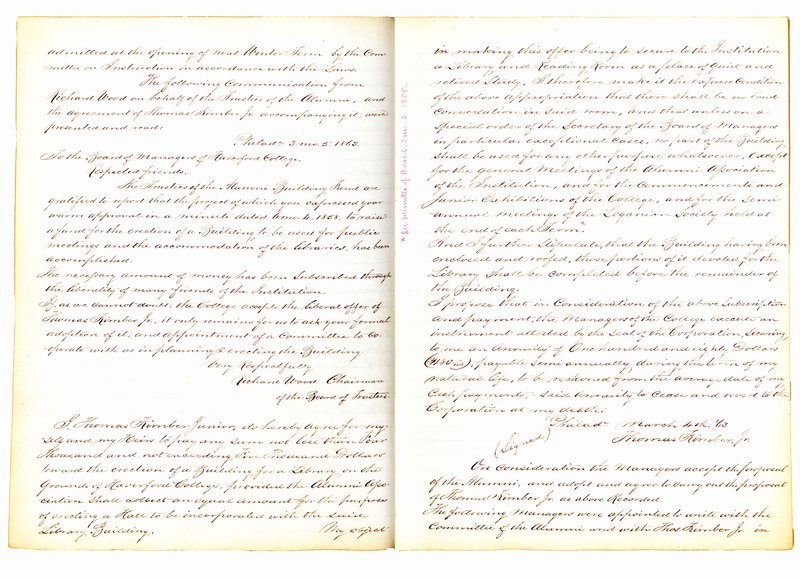 admitted at the opening of next Winter Term by the Com
mittee on Instruction in accordance with the Laws.
The following Communication from
Richard Wood on behalf of the Trustees of the Alumni, and
the agreement of Thomas Kimber Jr. accompanying it, were
presented and read:
Philada 3 mo 5. 1863.
To the Board of Managers of Haverford College.
Respected friends.
The Trustees of the Alumni Building Fund are
gratified to report that the project of which you expressed your
warm approval in a minute dated mo 4. 1858, to raise
a fund for the erection of a Building to be used for public
meetings and the accommodation of the libraries, has been
accomplished.
The necessary amount of money has been subscribed through
the liberality of many friends of the Institution.
If, as we cannot doubt, the College accepts the liberal offer of
Thomas Kimber Jr., it only remains for us to ask your formal
adoption of it, and appointment of a Committee to co-
operate with us in planning & erecting the Building.
Very Respectfully
Richard Wood Chairman
of the Board of Trustees
I, Thomas Kimber Junior, do hereby agree for my-
self and my Heirs to pay any sum not less than Four
Thousand and not exceeding Five Thousand Dollars
toward the erection of a Building for a Library, on the
Grounds of Haverford College, provided the Alumni Asso
ciation shall collect an equal amount for the purpose
of erecting a Hall to be incorporated with the said
Library Building. My object
* See minutes of Board
in making this offer being to secure to the Institution
a Library and Reading Room as a place of quiet and
retired Study, I therefore make it the express Condition
of the above appropriation that there shall be no loud
conversation in said room, and that unless on a
special order of the Secretary of the Board of Managers
in particular exceptional cases, no part of the Building
shall be used for any other purpose whatsoever, except
for the general Meetings of the Alumni Association
of the Institution, and for the Commencements and
Junior Exhibitions of the College, and for the Semi
annual meetings of the Loganian Society held at
the end of each Term.*
And I further Stipulate, that the Building having been
enclosed and roofed, those portions of it devoted for the
Library shall be completed before the remainder of
the Building.
I propose that in Consideration of the above Subscription
and payment, the Managers of the College execute an
instrument attested by the Seal of the Corporation, securing
to me an Annuity of One hundred and eighty Dollars
($180), payable semi annually, during the term of my
natural life, to be reckoned from the average date of my
Cash payment, said Annuity to Cease and revert to the
Corporation at my death.
Philada March 4th '63
(Signed) Thomas Kimber Jr.
On Consideration the Managers accept the proposal
of the Alumni, and adopt and agree to carry out the proposal
of Thomas Kimber Jr as above Recorded.
The following Managers were appointed to unite with the
Committee of the Alumni and with Thos Kimber Jr. in